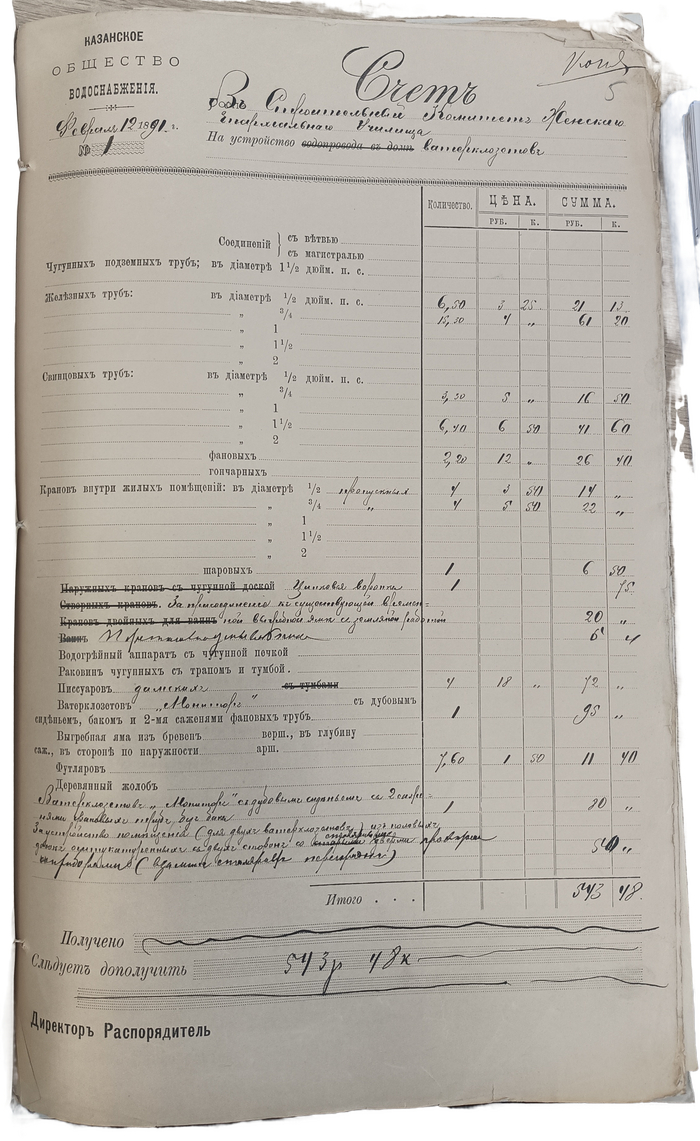 КАЗАНСКОЕ
ОБЩЕСТВО
ВОДОСНАБЖЕНІЯ.
Февраль 12 1891 г.
№ 1
Счетъ
Въ Строительный Комитетъ Женскаго
Епархіальнаго Училища
На устройство водопровода въ домѣ ватерклозетовъ
Количество. ЦѢНА. СУММА.
РУБ. К. РУБ. К.
Соединеній } съ вѣтвью
съ магистралью
Чугунныхъ подземныхъ трубъ; въ діаметрѣ 1 1/2 дюйм. п. с.
Желѣзныхъ трубъ: въ діаметрѣ 1/2 дюйм. п. с. 6,50 3 25 21 13
„ 3/4 15,30 4 „ 61 20
„ 1
„ 1 1/2
„ 2
Свинцовыхъ трубъ: въ діаметрѣ 1/2 дюйм. п. с.
„ 3/4 3,30 5 „ 16 50
„ 1
„ 1 1/2 6,40 6 50 41 60
„ 2
фановыхъ 2,20 12 „ 26 40
гончарныхъ
Крановъ внутри жилыхъ помѣщеній: въ діаметрѣ 1/2 пропускныхъ 4 3 50 14 „
„ 3/4 „ 4 5 50 22 „
„ 1
„ 1 1/2
„ 2
шаровыхъ 1 6 50
Наружныхъ крановъ съ чугунной доской Цинковая воронка 1 75
Створныхъ крановъ. За присоединеніе къ существующей времен-
Крановъ двойныхъ для ваннъ ной выгребной ямѣ съ земляной работой 20 „
Ваннъ 6
Водогрѣйный аппаратъ съ чугунной печкой
Раковинъ чугунныхъ съ трапомъ и тумбой.
Писсуаровъ дамскихъ съ тумбами 4 18 „ 72 „
Ватерклозетовъ „Мониторъ“ съ дубовымъ
сидѣньемъ, бакомъ и 2-мя саженями фановыхъ трубъ 1 95 „
Выгребная яма изъ бревенъ верш., въ глубину
саж., въ сторонѣ по наружности арш.
Футляровъ 7,60 1 50 11 40
Деревянный жолобъ
Ватерклозетовъ „Мониторъ“ съ дубовымъ сидѣньемъ съ 2 саже-
нями фановыхъ трубъ безъ бака 1 80 „
За устройство помѣщенія (для двухъ ватерклозетовъ) изъ половыхъ
досокъ оштукатуренныхъ съ двухъ сторонъ со дверми 50 „
Итого . . . 543 48.
Получено
Слѣдуетъ дополучить 543р 48к
Директоръ Распорядитель